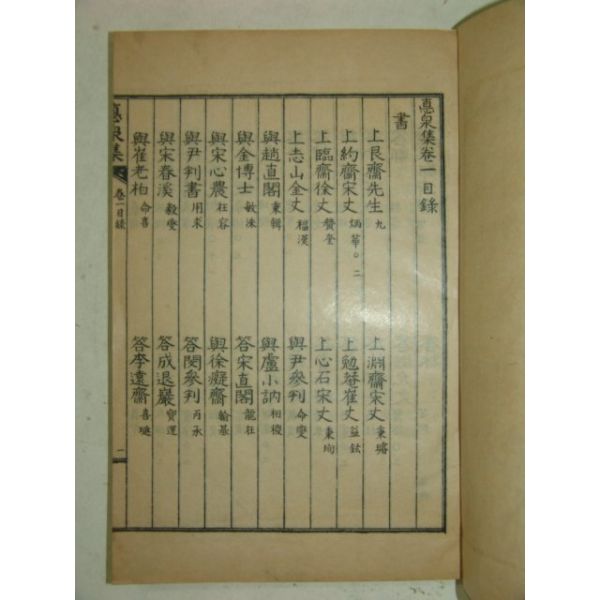 惪泉集卷一目錄
書
上艮齋先生 九
上淵齋宋丈 秉璿
上約齋宋丈 炳華○二
上勉菴崔丈 益鉉
上臨齋徐丈 贊奎
上心石宋丈 秉珣
上志山金丈 福漢
與尹參判 命燮
與趙直閣 東輯
與盧小訥 相稷
與金博士 敏洙
答宋直閣
與宋心農 在容
與徐癡齋
與尹判書 用求
答閔參判 丙承
與宋春溪 毅燮
答成退巖
與崔老柏 命喜
答李遠齋 喜璡
惪泉集
卷一目錄
一